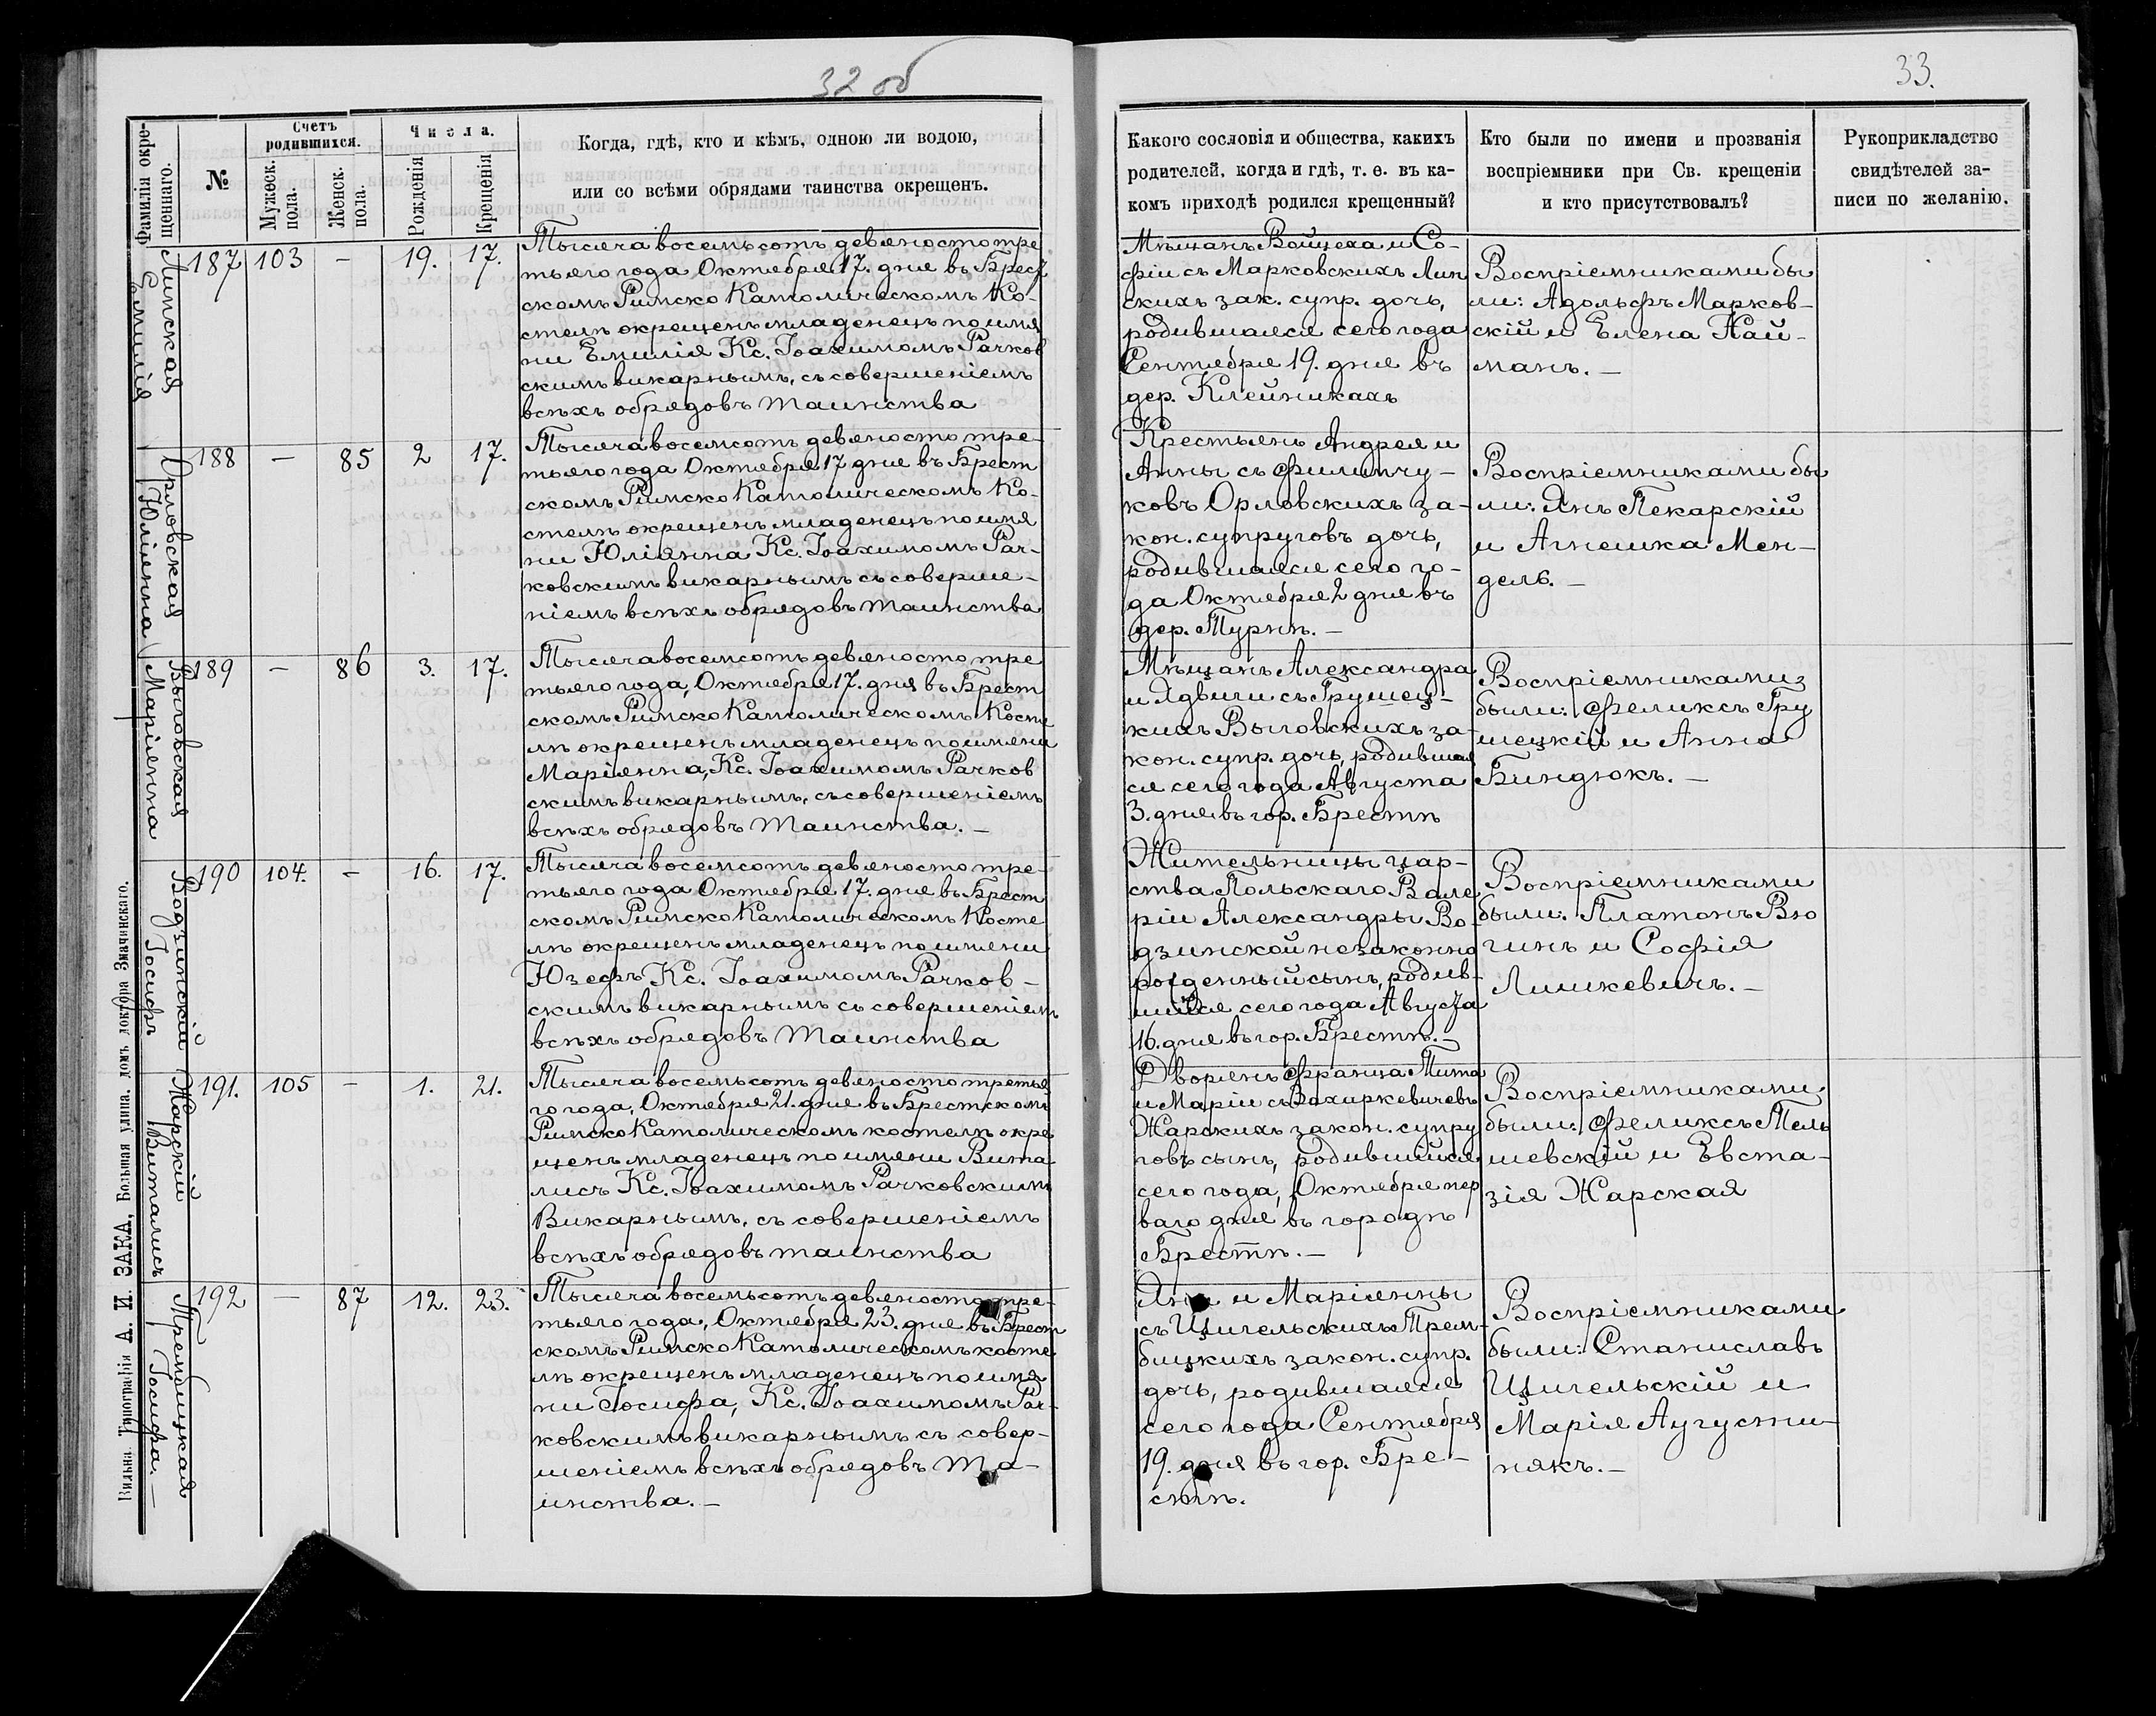 32 об
33.
Фамилія окрещеннаго.
№
Счетъ родившихся.
Мужеск. пола.
Женск. пола.
Числа.
Рожденія
Крещенія
Когда, гдѣ, кто и кѣмъ, одною ли водою,
или со всѣми обрядами таинства окрещенъ.
Какого сословія и общества, какихъ
родителей, когда и гдѣ, т. е. въ ка-
комъ приходѣ родился крещенный?
Кто были по имени и прозванія
воспріемники при Св. крещеніи
и кто присутствовалъ?
Рукоприкладство
свидѣтелей за-
писи по желанію.
Липская
Емилія
187 103 - 19. 17.
Тысяча восемьсотъ девяносто тре
тьяго года Октября 17. дня въ Брест
скомъ Римско Католическомъ Ко-
стелѣ окрещенъ младенецъ по имя
ни Емилія Кс. Іоахимомъ Рачков
скимъ викарнымъ, съ совершеніемъ
всѣхъ обрядовъ таинства
Мѣщанъ Войцеха и Со-
фіи съ Марковскихъ Лип
скихъ зак. супр. дочь,
родившаяся сего года
Сентября 19. дня въ
дер. Клейникахъ
Воспріемниками бы
ли: Адольфъ Марков-
скій и Елена Най-
манъ. -
Орловская
Юліянна
188 - 85 2 17.
Тысяча восемсотъ девяносто тре-
тьяго года Октября 17 дня въ Брест
скомъ Римско Католическомъ Ко-
стелѣ окрещенъ младенецъ по имя
ни Юліянна Кс. Іоахимомъ Рач-
ковскимъ викарнымъ съ соверше-
ніемъ всѣхъ обрядовъ таинства
Крестьянъ Андрея и
Анны съ Филипчу-
ковъ Орловскихъ за-
кон. супруговъ дочь,
родившаяся сего го-
да Октября 2 дня въ
дер. Турнѣ. -
Воспріемниками бы
ли: Янъ Пекарскій
и Агнешка Мен-
дель. -
Выговская
Маріянна
189 - 86 3. 17.
Тысяча восемсотъ девяносто тре
тьяго года, Октября 17. дня въ Брест
скомъ Римско Католическомъ Косте
лѣ окрещенъ младенецъ по имени
Маріянна, Кс. Іоахимомъ Рачков
скимъ викарнымъ, съ совершеніемъ
всѣхъ обрядовъ таинства. -
Мѣщанъ Александра
и Ядвиги съ Грушец-
кихъ Выговскихъ за-
кон. супр. дочь, родившая
ся сего года Августа
3. дня въ гор. Брестѣ
Воспріемниками
были: Феликсъ Гру
шецкій и Анна
Биндюкъ. -
Водзинскій
Іосифъ
190 104. - 16. 17.
Тысяча восемсотъ девяносто тре-
тьяго года Октября 17. дня въ Брест
скомъ Римско Католическомъ Косте
лѣ окрещенъ младенецъ по имени
Юзефъ, Кс. Іоахимомъ Рачков-
скимъ викарнымъ съ совершеніемъ
всѣхъ обрядовъ таинства
Жительницы цар-
ства Польскаго Вале
ріи Александры Во-
дзинской незаконно
рожденный сынъ, родив-
шійся сего года Августа
16. дня въ гор. Брестѣ. -
Воспріемниками
были: Платонъ Вю
гинъ и Софія
Лишкевичъ. -
Жарскій
Виталисъ
191. 105 - 1. 21.
Тысяча восемьсотъ девяносто третья
го года, Октября 21. дня въ Брестскомъ
Римско Католическомъ костелѣ окре
щенъ младенецъ по имени Вита
лисъ Кс. Іоахимомъ Рачковскимъ
Викарнымъ, съ совершеніемъ
всѣхъ обрядовъ таинства
Дворянъ Франца Тита
и Маріи съ Вахиркевичевъ
Жарскихъ закон. супру
говъ сынъ, родившійся
сего года, Октября пер
ваго дня въ городѣ
Брестѣ. -
Воспріемниками
были: Феликсъ Тель
шевскій и Евста-
зія Жарская
Трембицкая
Іосифа. -
192 - 87 12. 23.
Тысяча восемьсотъ девяносто тре-
тьяго года, Октября 23. дня въ Брест
скомъ Римско Католическомъ косте
лѣ окрещенъ младенецъ по имя
ни Іосифа, Кс. Іоахимомъ Рач-
ковскимъ викарнымъ съ совер-
шеніемъ всѣхъ обрядовъ та-
инства. -
Яна и Маріянны
съ Цигельскихъ Трем-
бицкихъ закон. супр.
дочь, родившаяся
сего года Сентября
19. дня въ гор. Бре-
стѣ.
Воспріемниками
были: Станиславъ
Цигельскій и
Марія Аугусти-
някъ. -
Вильна. Типографія А. И. ЗАКА, Большая улица, домъ доктора Змачинскаго.